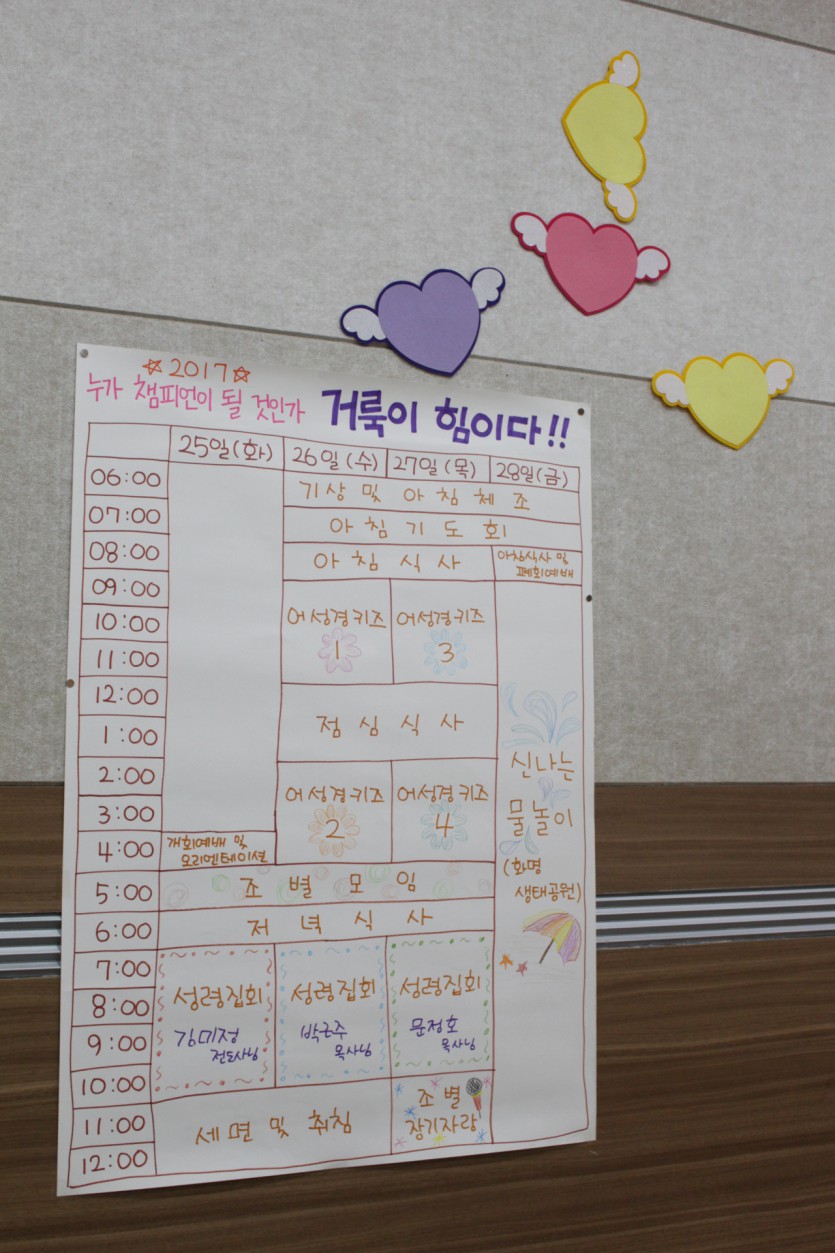 ☆2017☆
누가 챔피언이 될 것인가 거룩이 힘이다!!
25일(화) 26일(수) 27일(목) 28일(금)
06:00 기상 및 아침체조
07:00 아침기도회
08:00 아침식사 아침식사 및
폐회예배
09:00
10:00 어성경키즈 어성경키즈
1 3
11:00
12:00
1:00 점심식사
2:00 신나는
어성경키즈 어성경키즈
3:00 2 4 물놀이
4:00 개회예배 및
오리엔테이션
(화명
생태공원)
5:00 조별모임
6:00 저녁식사
7:00
8:00 성령집회 성령집회 성령집회
9:00 김미정 박근주 문정호
전도사님 목사님 목사님
10:00
조별
11:00 세면 및 취침 장기자랑
12:00